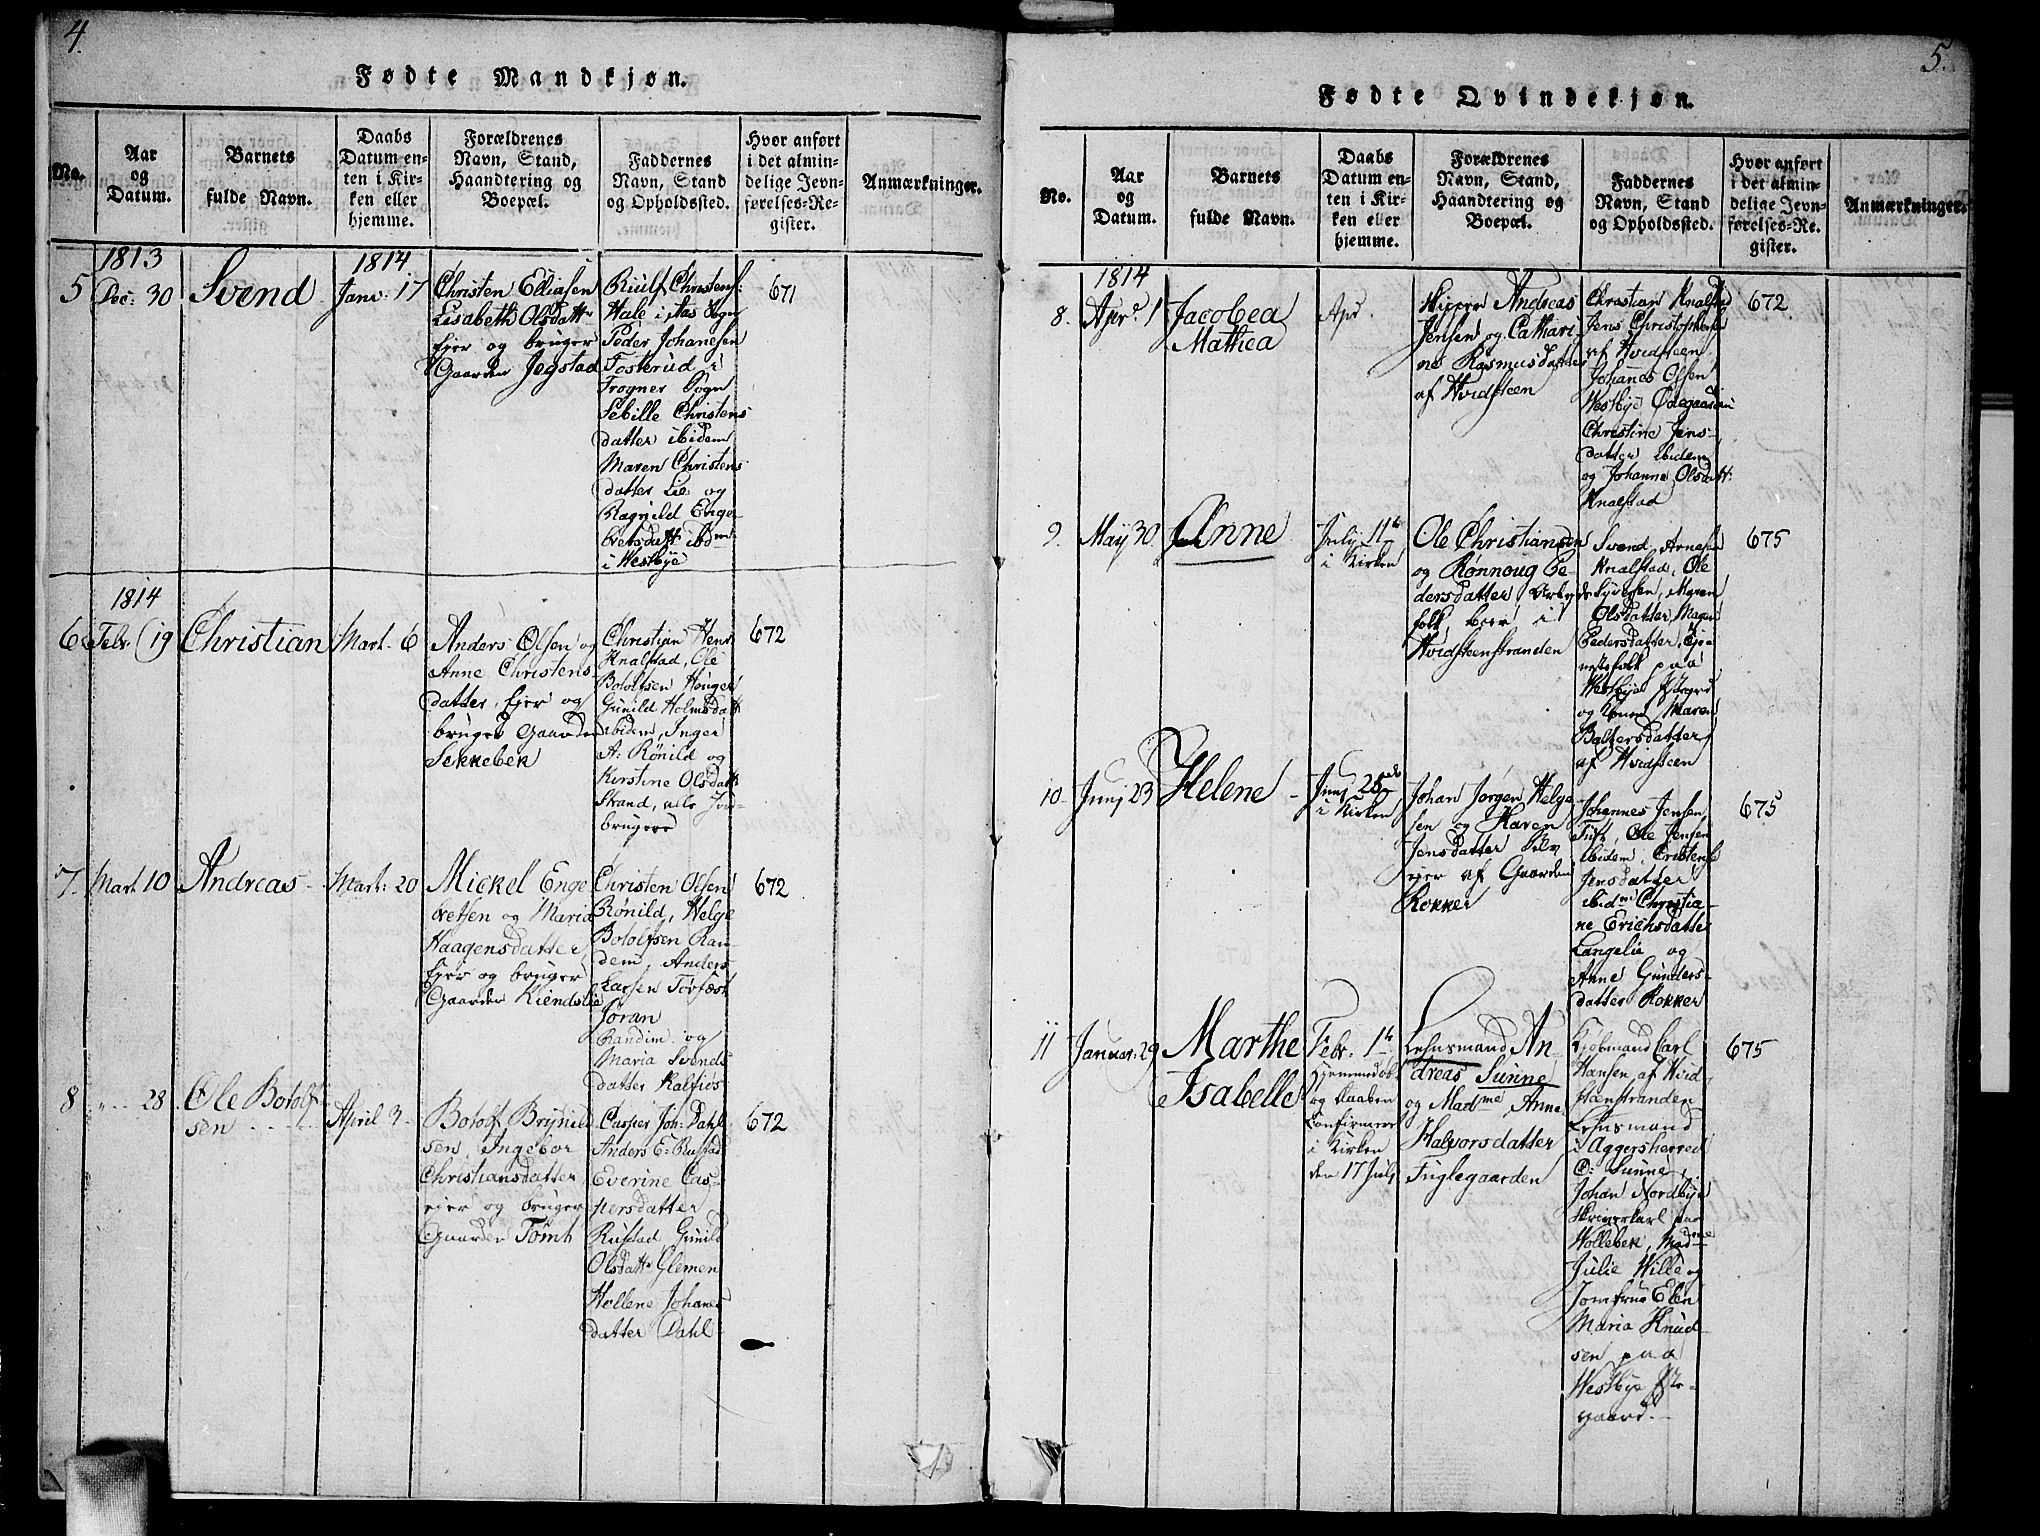 4.
Fødte Mandkjøn.
No.
Aar
og
Datum.
Barnets
fulde Navn.
Daabs
Datum en-
ten i Kir-
ken eller
hjemme.
Forældrenes
Navn, Stand,
Haandtering og
Boepæl.
Faddernes
Navn, Stand
og Opholdssted.
Hvor anført
i det almin-
delige Jevn-
førelses-Re-
gister.
Anmærkninger.
1813
5
Dec: 30
Svend
1814
Janv: 17
Christen Eliasen
Lisabeth Olsdattr
Ejer og bruger
Gaarden Jegstad
Christens:
Hale i Aas Sogn
Peder Johanesen
Fosterud i
Frogner Sogn
Sebille Christens
datter ibidem
Maren Christens
datter Lie og
Ragnild Enge-
bretsdattr ibdm
i Westbye
671
1814
6
Febr. 19
Christian
Mart. 6
Anders Olsen og
Anne Christens-
datter, Ejer og
bruger Gaarden
Sekkebek
Christian Jens:
Knalstad, Ole
Botolfsen Houger
Gunild Holmsdattr
ibidem, Inger
A: Rönild og
Kirstine Olsdattr
Strand, alle Jord-
brugere
672
7.
Mart. 10
Andreas
Mart: 20
Mickel Enge
bretsen og Maria
Haagensdatter
Ejer og bruger
Gaarden Kiendslie
Christen Olsen
Rönild, Helge
Botolfsen Ran-
dem, Anders
Larsen Torfæst
Jöran
Randim og
Maria Svends
datter Kalfios-
672
8
" 28
Ole Botolf-
sen
April 3
Botolf Brynild
sen, Ingebor
Christiansdatter
ejer og bruger
Gaarden Tömt
Casper Joh: Dahl
Anders E: Rustad
Everine Cas-
persdatter
Rustad Gunild
Olsdattr Glemen
Hellene Johans
datter Dahl
672
5.
Fødte Qvindekjøn.
No.
Aar
og
Datum.
Barnets
fulde Navn.
Daabs
Datum en-
ten i Kir-
ken eller
hjemme.
Forældrenes
Navn, Stand,
Haandtering og
Boepæl.
Faddernes
Navn, Stand
og Opholdssted.
Hvor anført
i det almin-
delige Jevn-
førelses-Re-
gister.
Anmærkninger.
1814
8.
Apr. 1
Jacobea
Mathea
Apr.
Skipper Andreas
Jensen og Cathari
ne Rasmusdatter
af Hvidsteen
Christian Knalstad
Jens Christophersen
af Hvidsteen
Johanes Olsen
Westbye Ødegaarden
Christine Jens-
datter ibidem
og Johanne Olsdattr
Knalstad
672
9.
May 30
Anne
July 11te
i Kirken
Ole Christiansen
og Rønnoug Pe-
dersdatter Arbejds
folk, boer i
Hvidsteenstranden
Svend Arnesen
Knalstad, Ole
Syversen, Maren
Olsdatter, Magn
Pedersdatter, Tje-
nestefolk paa
Westbye Pstegrd
og Konen Maren
Baltersdatter
af Hvidsteen
675
10
Junj 23
Helene
Junj 25de
i Kirken
Johan Jørgen Helge
sen og Karen
Jensdatter Selv
ejer af Gaarden
Rokker
Johannes Jensen
Tuft, Ole Jensen
ibidem, Cristense
Jensdatter
ibidm Christia-
ne Erichsdatter
Langelie og
Anne Gunders-
datter Rokker
675
11
Januar: 29
Marthe
Isabelle
Febr. 1te
Hjemmedøb.
og Daaben
Confirmeret
i Kirken
den 17 July
Lehnsmand An-
dreas Sunne
og Madme Anne
Halvorsdatter
Fuglegaarden
Kjøbmand Carl
Hansen af Hvid
stenstranden
Lehnsmand
i Aggersherred
C: Sunne,
Johan Nordbye
Skriverkarl paa
Wollebek, Madme
Julie Wille og
Jomfrue Elen
Maria Knud-
sen paa
Westbye Pste-
gaard.
675